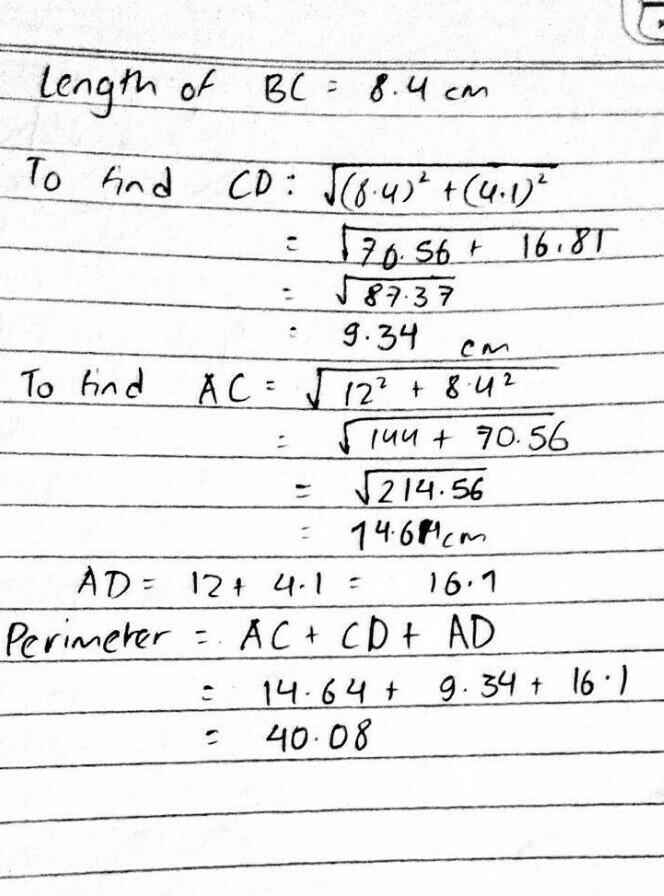 Length of BC = 8.4 cm
To find CD : √(8.4)² + (4.1)²
= √70.56 + 16.81
= √87.37
= 9.34 cm
To find AC = √12² + 8.4²
= √144 + 70.56
= √214.56
= 14.64cm
AD = 12 + 4.1 = 16.1
Perimeter = AC + CD + AD
= 14.64 + 9.34 + 16.1
= 40.08